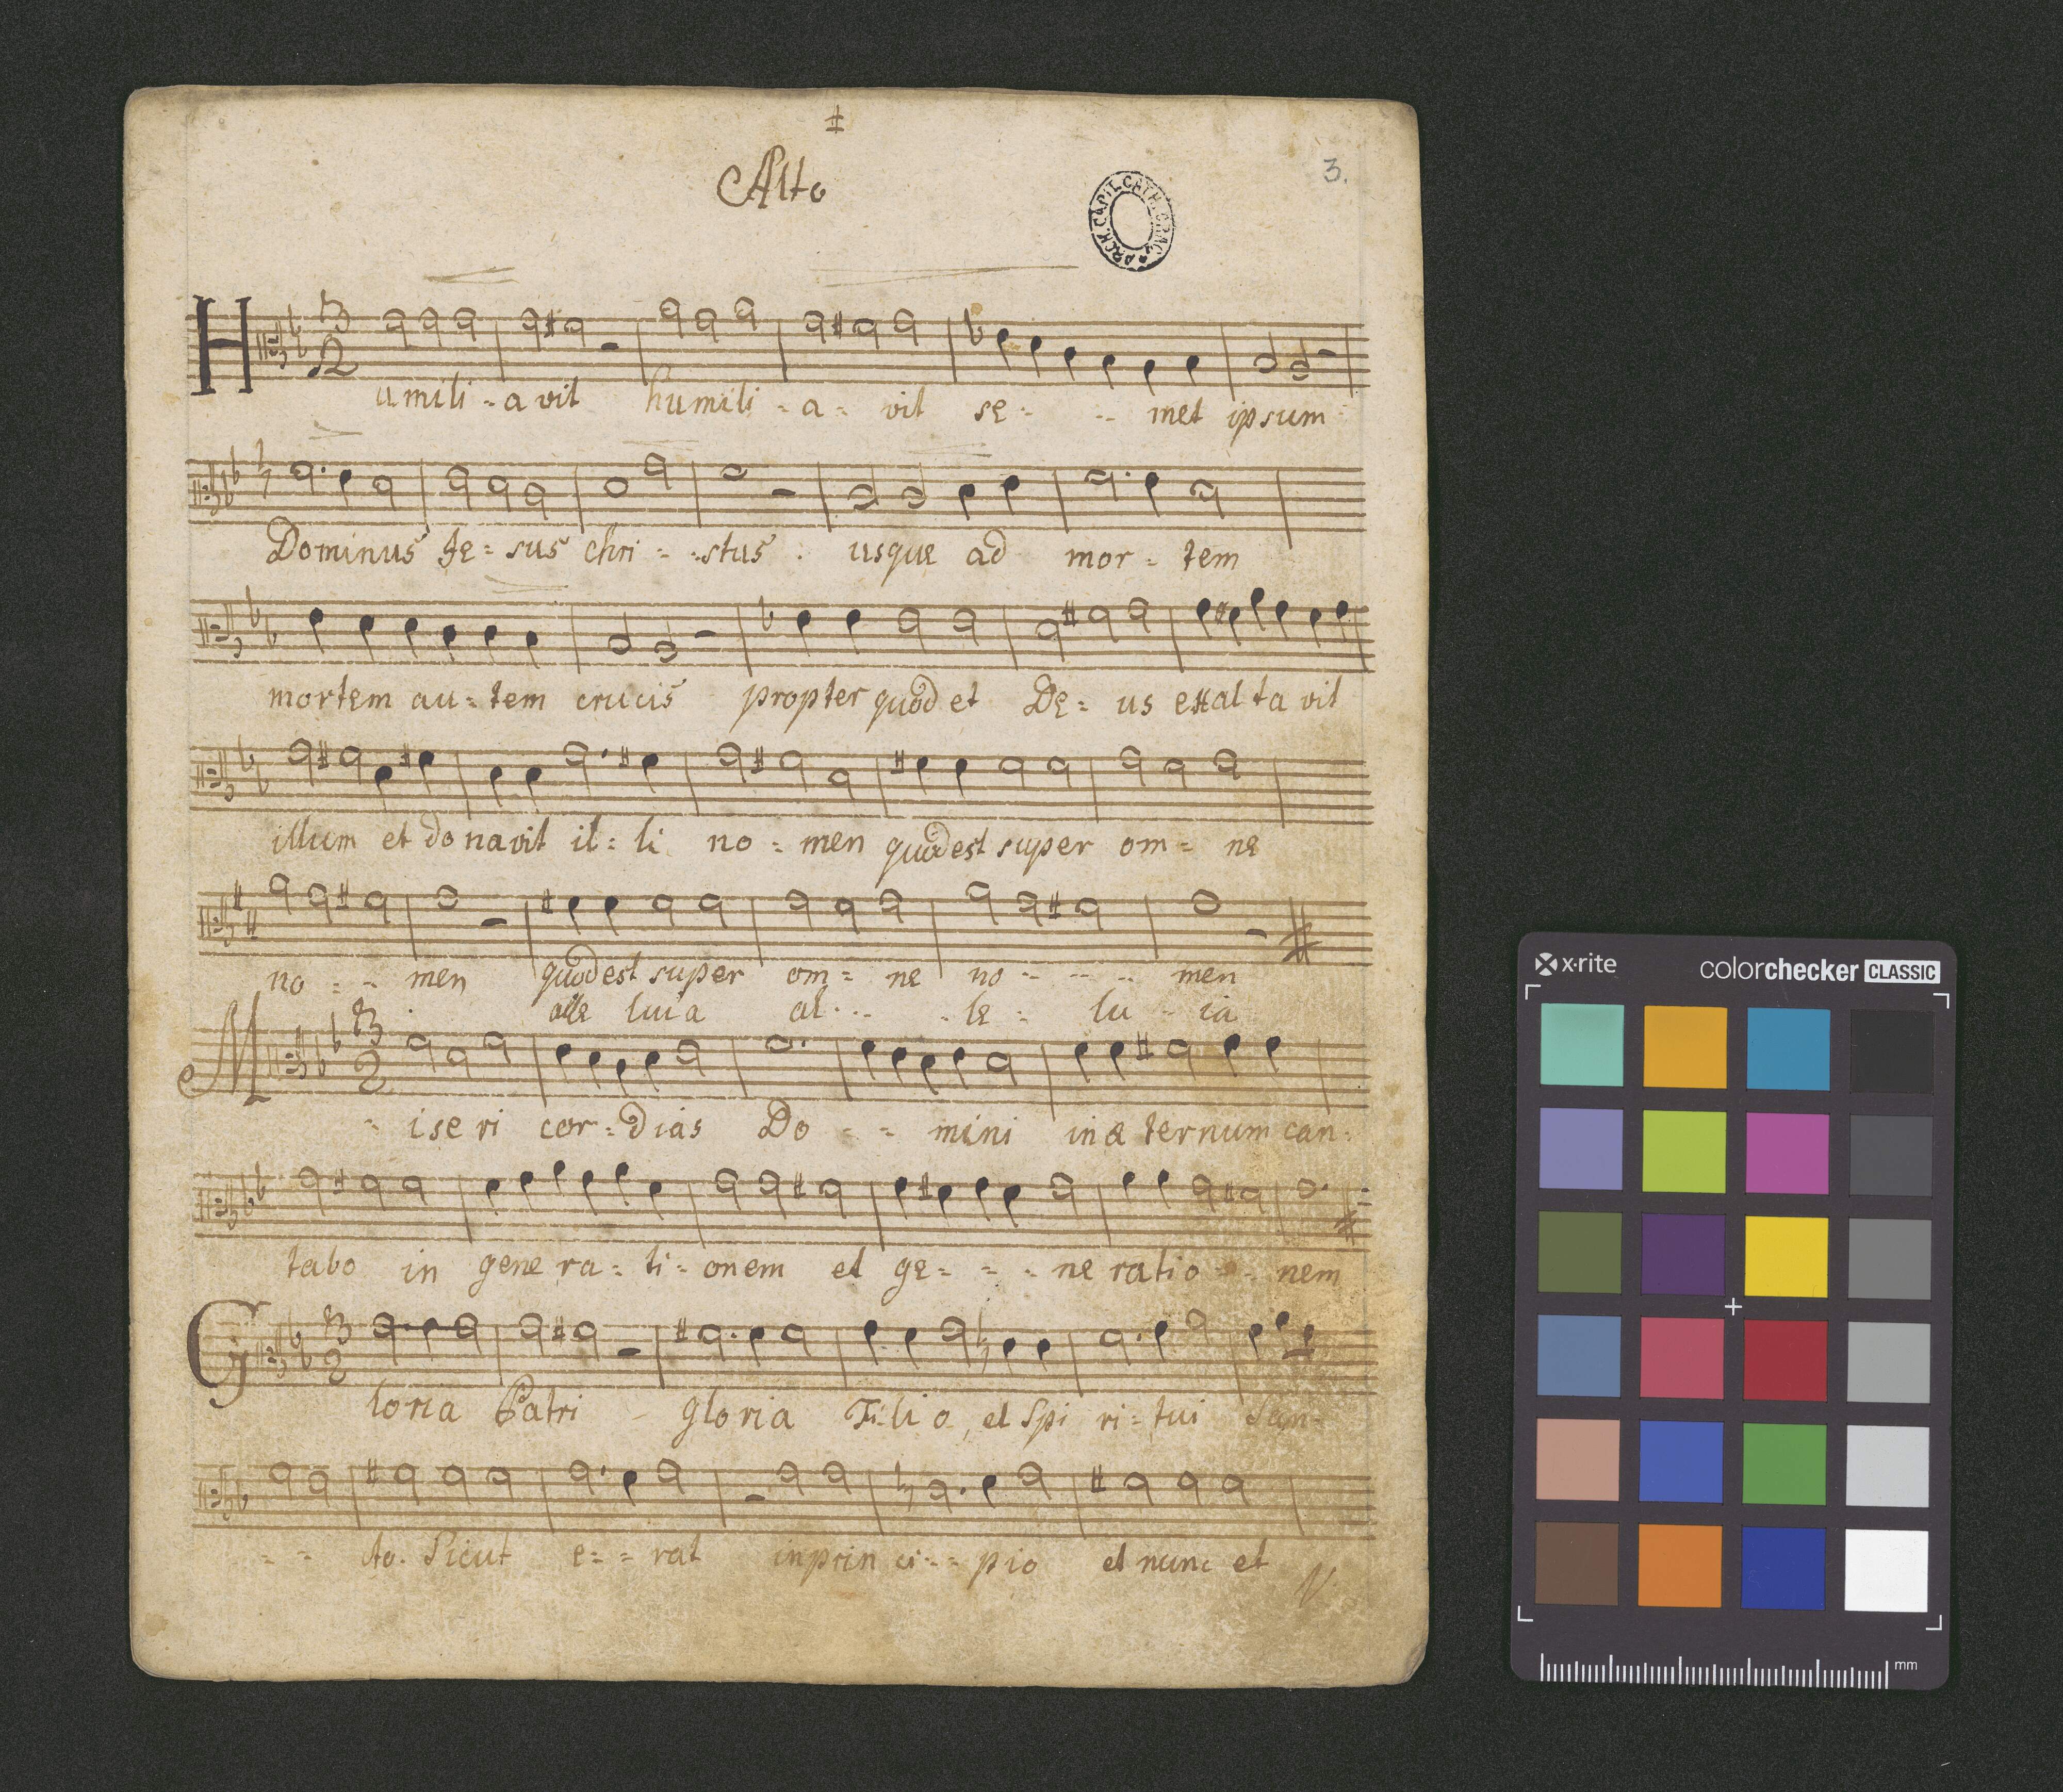 Alto
3.
ARCH. CAPIT. CATH. CRAC.
H 3 2
umili - a vit humili - a - vit se - - met ipsum
Dominus Je - sus Chri - - stus . usque ad mor - tem
mortem au - tem crucis propter quod et De - us exaltavit
illum et donavit il - li no - men quod est super om - ne
no - - men quod est super om - ne no - - - men
alle luia al - - - le - lu - ia
M 3 2
- iseri cor - dias Do - - mini in æ ternum can -
tabo in genera - ti - onem et ge - - - ne ratio - - nem
G 3 2
loria Patri - gloria Filio, et Spi ri - tui San -
- - cto. Sicut e - - rat in prin ci - - pio et nunc et
x-rite
colorchecker CLASSIC
mm